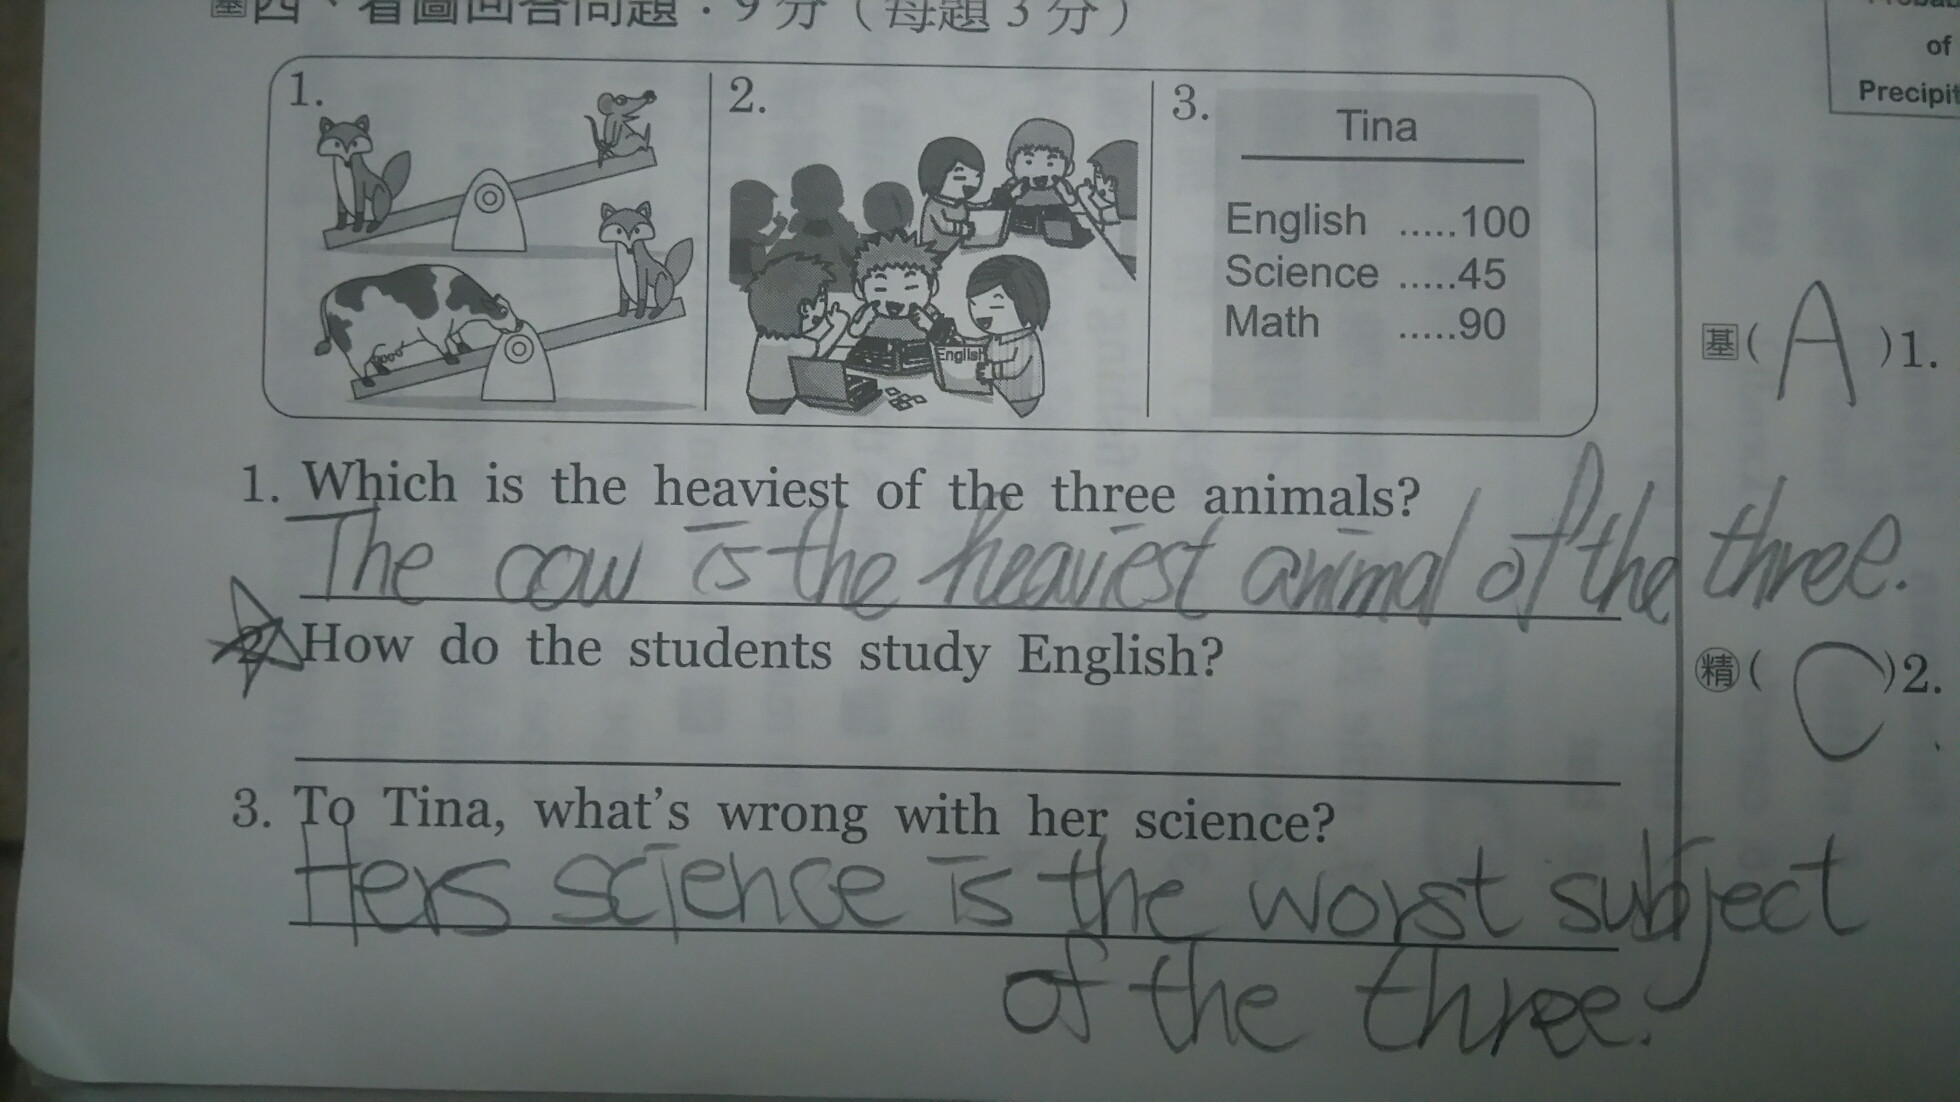 基 四、看圖回答問題：9 分（每題 3 分）
1.
2.
English
3.
Tina
English .....100
Science .....45
Math .....90
1. Which is the heaviest of the three animals?
The cow is the heaviest animal of the three.
2. How do the students study English?
3. To Tina, what's wrong with her science?
Hers science is the worst subject
of the three.
of
Precipit
基 ( A ) 1.
精 ( C ) 2.